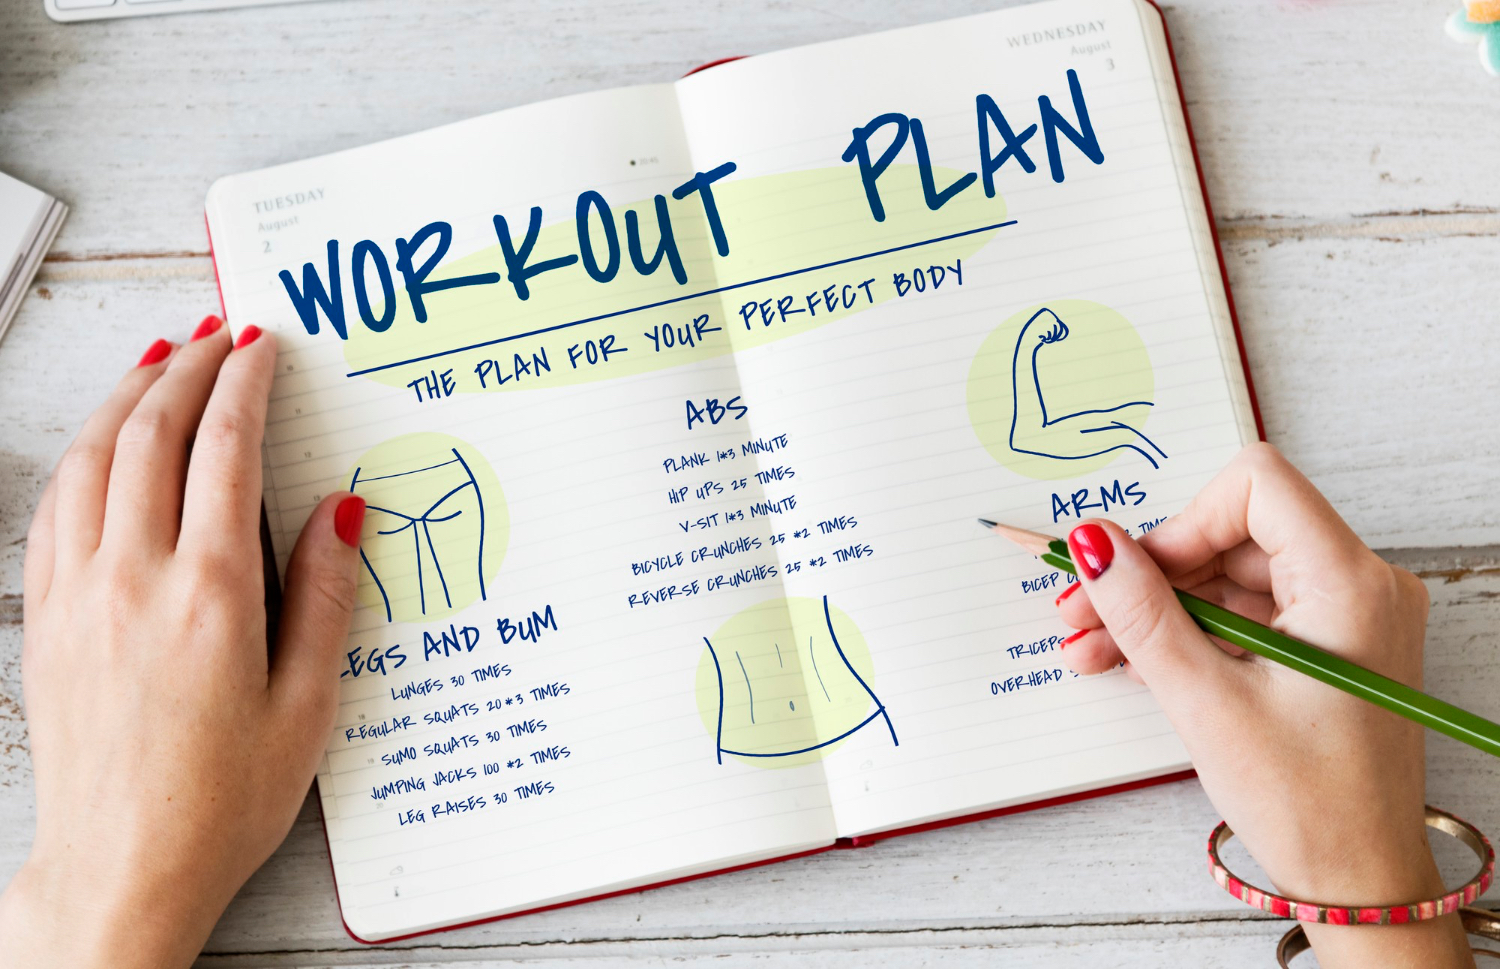 TUESDAY
August
2
WEDNESDAY
August
3
WORKOUT PLAN
THE PLAN FOR YOUR PERFECT BODY
LEGS AND BUM
LUNGES 30 TIMES
REGULAR SQUATS 20*3 TIMES
SUMO SQUATS 30 TIMES
JUMPING JACKS 100 *2 TIMES
LEG RAISES 30 TIMES
ABS
PLANK 1*3 MINUTE
HIP UPS 25 TIMES
V-SIT 1*3 MINUTE
BICYCLE CRUNCHES 25 *2 TIMES
REVERSE CRUNCHES 25 *2 TIMES
ARMS
2 TIME
BICEP
TRICEPS
OVERHEAD